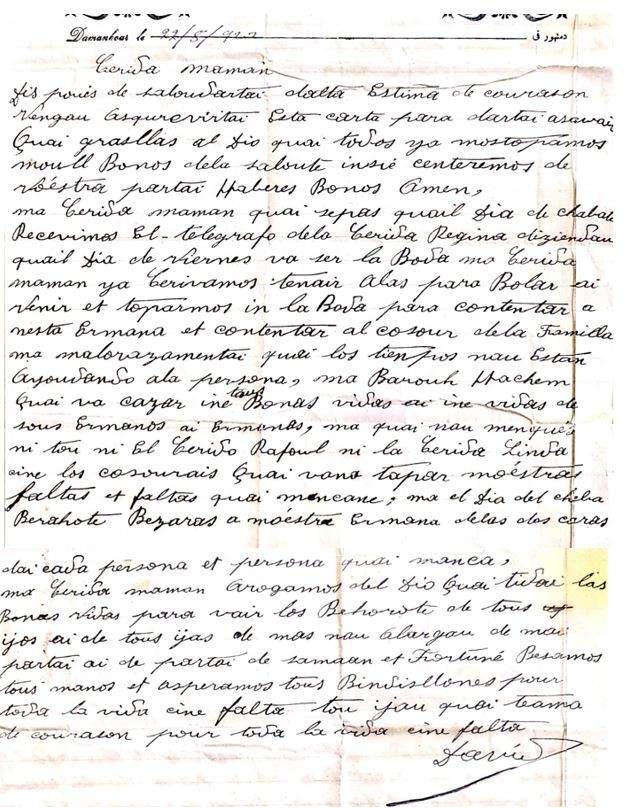 Damanhour le 22/5/922 دمنهور فى
Cerida maman
Dis poués de saloudartai dalta Estima de courason
vengau Asqurevirtai Esta carta para dartai asavair
Quai grasllas al Dio quai todos ya mostopamos
moull Bonos dela saloute insié centeremos de
voéstra partai Haberes Bonos Amen,
ma Cerida maman quai sepas quail Dia de chabate
Recevimos El-telegrafo dela Cerida Regina diziendau
quail Dia de viernes va ser la Boda ma Cerida
maman ya Cerivamos tenair Alas para Bolar ai
venir et toparmos in la Boda para contentar a
nesta Ermana et contentar al cosour dela Familla
ma malorazamentai quai los tienpos nau Estan
Ayoudando ala persona, ma Barouh Hachem
Quai va cazar ine tous Bonas vidas ai ine vidas de
sous Ermanos ai Ermanas, ma quai nau menques
ni tou ni El Cerido Rafoul ni la Cerida Linda
cine los cosourais Quai vano tapar moéstras
faltas et faltas quai mencane, ma el Dia del cheba
Berahote Bezaras a moéstra Ermana delas dos caras
dai cada persona et persona quai manca,
ma Cerida maman Arogamos del Dio Quai tidai las
Bonas vidas para vair los Behorote de tous
ijos ai de tous ijas de mas nau Alargau de mai
partai ai de partai de samaan et Fortuné Besamos
tous manos et asperamos tous Bindisllones pour
toda la vida cine falta tou ijau quai teama
de courason pour toda la vida cine falta
David